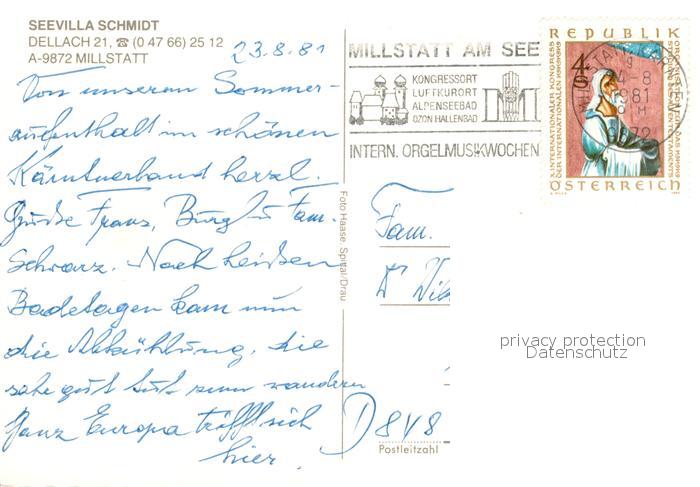 SEEVILLA SCHMIDT
DELLACH 21, ☎ (0 47 66) 25 12
A-9872 MILLSTATT
23.8.81
Von unseren Sommer-
aufenthalt im schönen
Kärntnerland herzl.
Grüße Franz, Burgl u Fam.
Schwarz. Nach heißen
Badetagen kam nun
die Abkühlung, die
sehr gut tut zum wandern
Ganz Europa trifft sich
hier.
Foto Haase, Spittal/Drau
MILLSTATT AM SEE
KONGRESSORT
LUFTKURORT
ALPENSEEBAD
OZON HALLENBAD
INTERN. ORGELMUSIKWOCHEN
REPUBLIK
4 S
X. INTERNATIONALER KONGRESS
DER INTERNATIONALEN
ÖSTERREICH
Fam.
D 848
Postleitzahl
privacy protection
Datenschutz